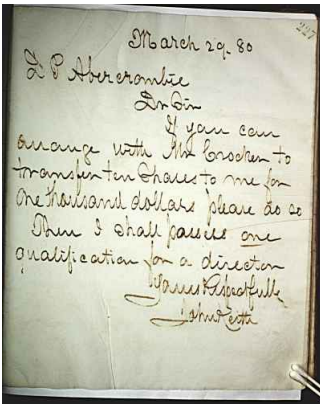 227
March 29. 80
L P Abercrombie
Dr Sir
If you can
arrange with Mr Crocker to
transfer ten Shares to me for
One thousand dollars please do so
Then I shall possess one
qualification for a director
Yours Respectfully
John Keith